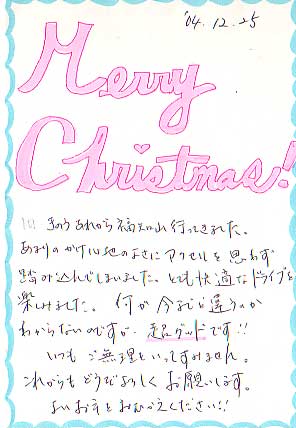 '04.12.25
Merry
Christmas!
きのうあれから福知山行ってきました。
あまりのかけ心地のよさにアクセルを思わず
踏み込んでしまいました。とても快適なドライブを
楽しみました。何が今までと違うのか
わからないのですが、超グッドです!!
いつもご無理をいってすみません。
これからもどうぞよろしくお願いします。
よいお年をおむかえください!!